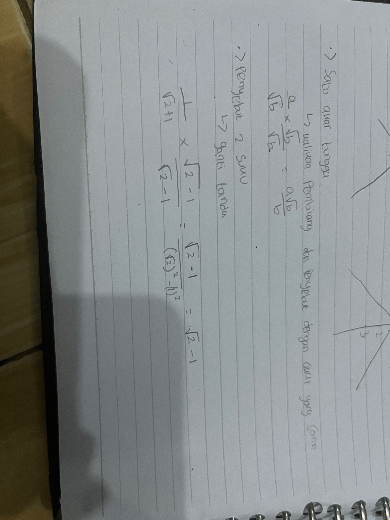 •> Satu akar tunggal
↳ kalikan pembilang dan penyebut dengan akar yang sama
a/√b × √b/√b = a√b/b
•> Penyebut 2 suku
↳ ganti tanda
1/√2+1 × √2-1/√2-1 = √2-1/(√2)²-(1)² = √2-1